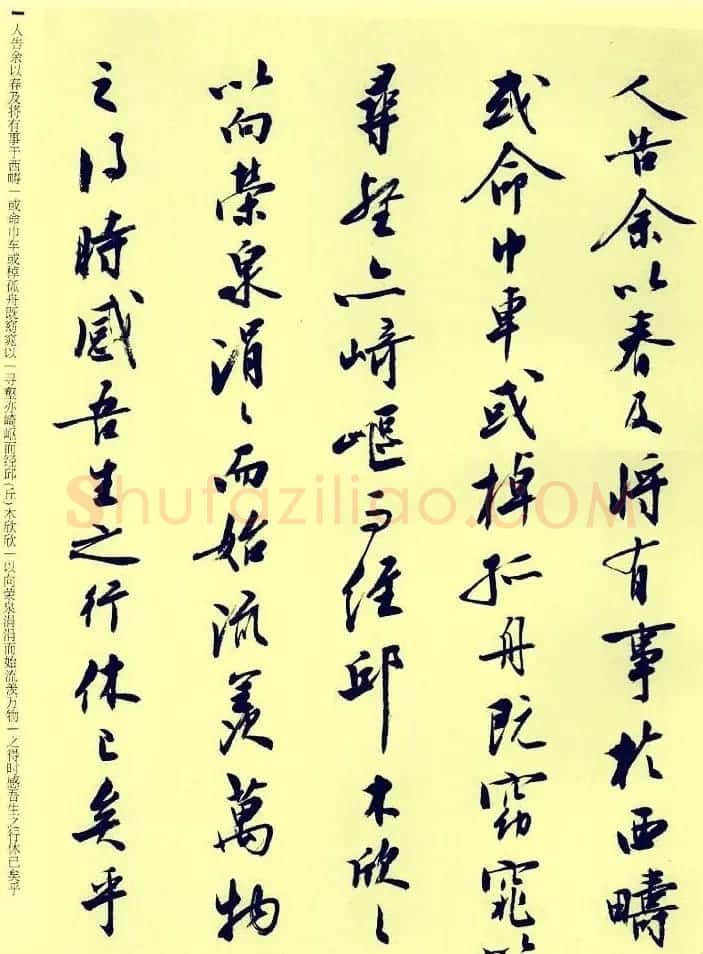 人告余以春及将有事於西疇
或命巾車或棹孤舟既窈窕以
尋壑亦崎嶇而经邱木欣〻
以向榮泉涓〻而始流羨萬物
之得時感吾生之行休已矣乎
人告余以春及将有事于西畴|或命巾车或棹孤舟既窈窕以|寻壑亦崎岖而经邱(丘)木欣欣|以向荣泉涓涓而始流羡万物|之得时感吾生之行休已矣乎
Shufaziliao.COM